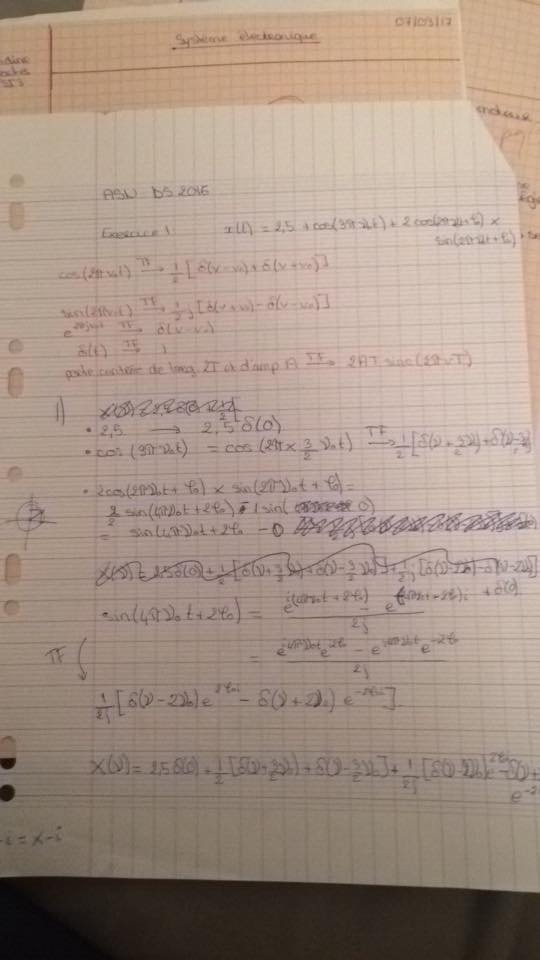 07/03/17
Système électronique
ASN DS 2016
Exercice 1 x(t) = 2,5 + cos(3πν₀t) + 2cos(2πν₀t+φ₀) ×
sin(2πν₀t + φ₀)
cos(2πν₀t) TF→ 1/2 [δ(ν-ν₀) + δ(ν+ν₀)]
sin(2πν₀t) TF→ 1/2 j [δ(ν+ν₀) - δ(ν-ν₀)]
TF→ δ(ν-ν₀)
δ(t) TF→ 1
porte centrée de long. 2T et d'amp A TF→ 2AT sinc(2πνT)
1)
• 2,5 → 2,5 δ(0)
• cos(3πν₀t) = cos(2π × 3/2 ν₀t) TF→ 1/2 [δ(ν + 3/2 ν₀) + δ(ν - 3/2
• 2cos(2πν₀t + φ₀) × sin(2πν₀t + φ₀) =
2/2 sin(4πν₀t + 2φ₀) 1 sin( 0)
= sin(4πν₀t + 2φ₀ - 0
+ δ(0)
sin(4πν₀t + 2φ₀) = e^i(4πν₀t + 2φ₀) - e / 2j
= e^i4πν₀t e^2φ₀ - e e^-2φ₀ / 2j
TF
1/2j [δ(ν - 2ν₀) e^2φ₀i - δ(ν + 2ν₀) e^-2φ₀i].
X(ν) = 2,5 δ(0) + 1/2 [δ(ν + 3/2 ν₀) + δ(ν - 3/2 ν₀)] + 1/2j [δ(ν - 2ν₀) e - δ(ν +
e^-2
-i = x-i